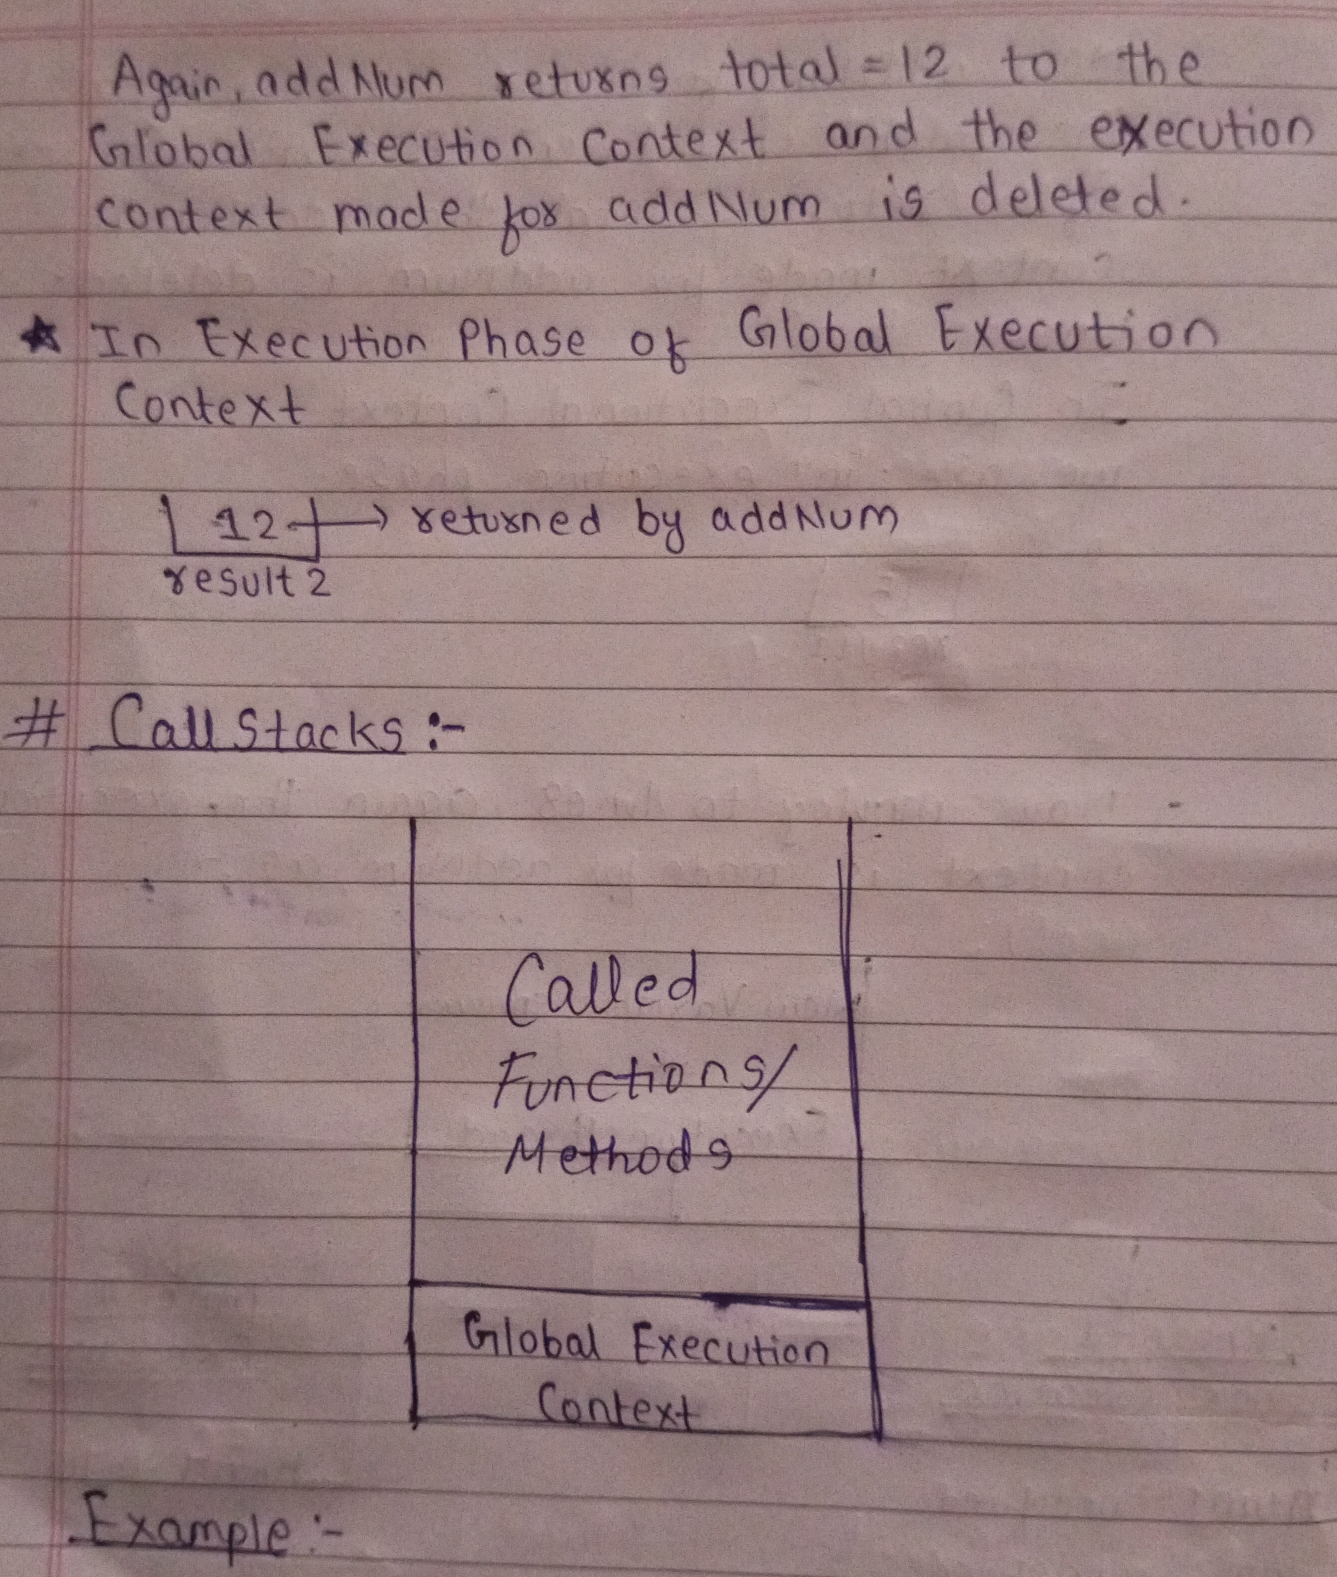 Again, addNum returns total = 12 to the
Global Execution Context and the execution
context made for addNum is deleted.
★ In Execution Phase of Global Execution
Context
12 → returned by addNum
result 2
# Call Stacks :-
Called
Functions/
Methods
Global Execution
Context
Example :-